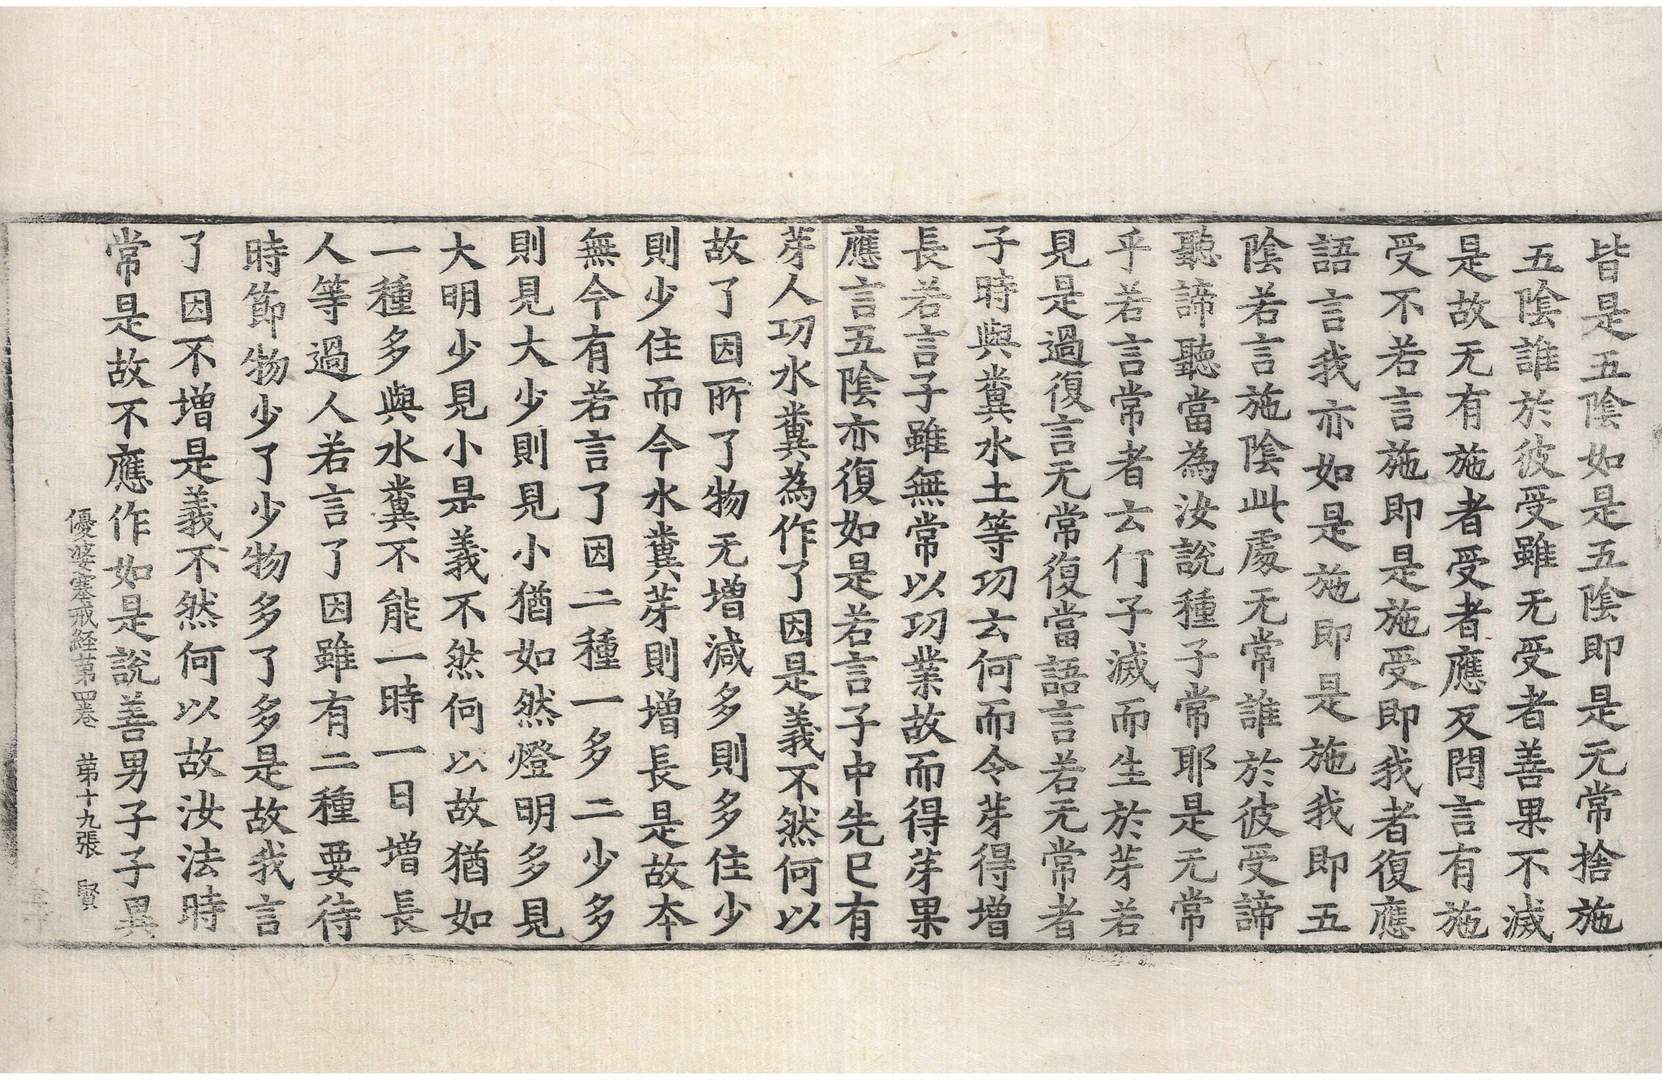 皆是五陰如是五陰即是无常捨施
五陰誰於彼受雖无受者善果不滅
是故无有施者受者應反問言有施
受不若言施即是施受即我者復應
語言我亦如是施即是施我即五
陰若言施陰此處无常誰於彼受諦
聽諦聽當為汝說種子常耶是无常
乎若言常者云何子滅而生於芽若
見是過復言无常復當語言若无常者
子時與糞水土等功云何而令芽得增
長若言子雖無常以功業故而得芽果
應言五陰亦復如是若言子中先已有
芽人功水糞為作了因是義不然何以
故了因所了物无增減多則多住少
則少住而今水糞芽則增長是故本
無今有若言了因二種一多二少多
則見大少則見小猶如然燈明多見
大明少見小是義不然何以故猶如
一種多與水糞不能一時一日增長
人等過人若言了因雖有二種要待
時節物少了少物多了多是故我言
了因不增是義不然何以故汝法時
常是故不應作如是說善男子子異
優婆塞戒経第四卷　第十九張　賢